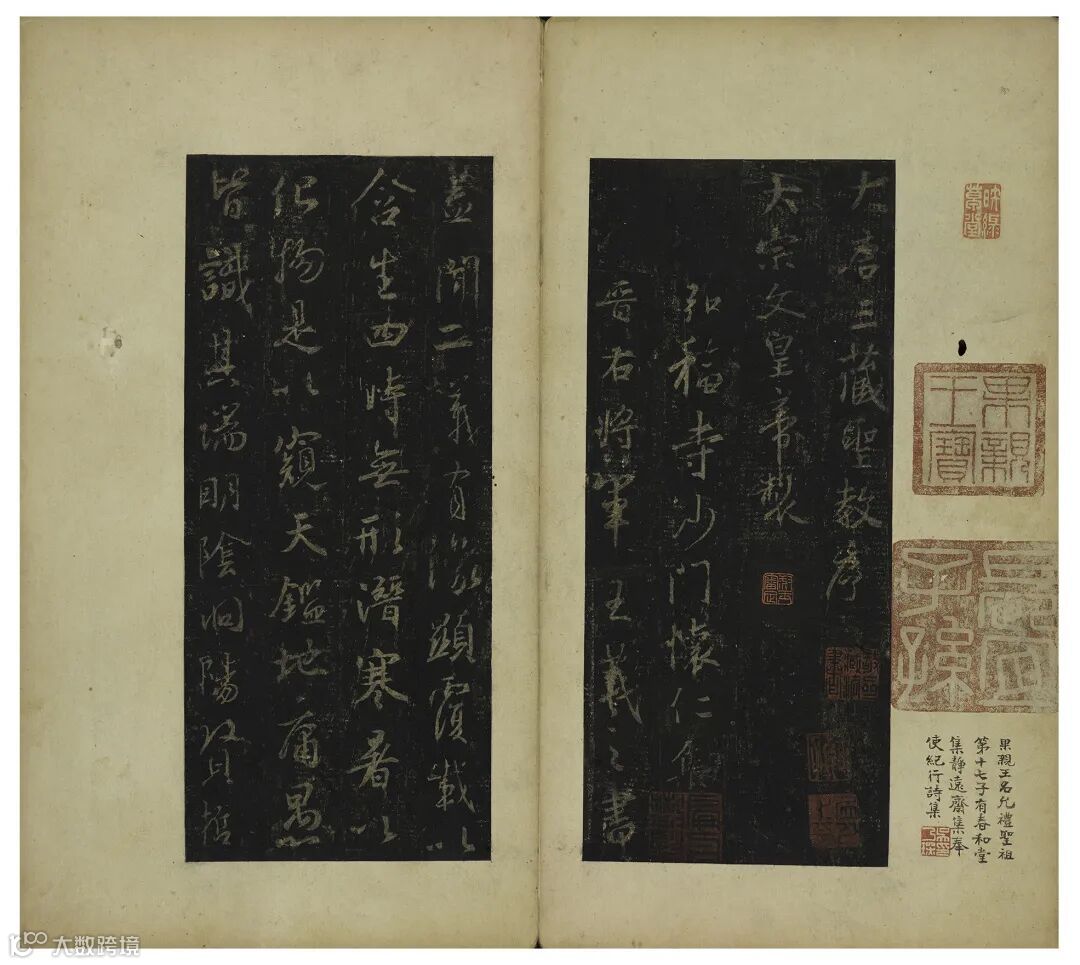 大唐三藏聖教序
太宗文皇帝製
弘福寺沙門懷仁集
晉右將軍王羲之書
蓋聞二儀有像顯覆載以
含生四時無形潛寒暑以
化物是以窺天鑑地庸愚
皆識其端明陰洞陽賢哲
映綠草堂
果親王寶
子孫
果親王名允禮聖祖
第十七子有春和堂
集靜遠齋集奉
使紀行詩集
大数跨境